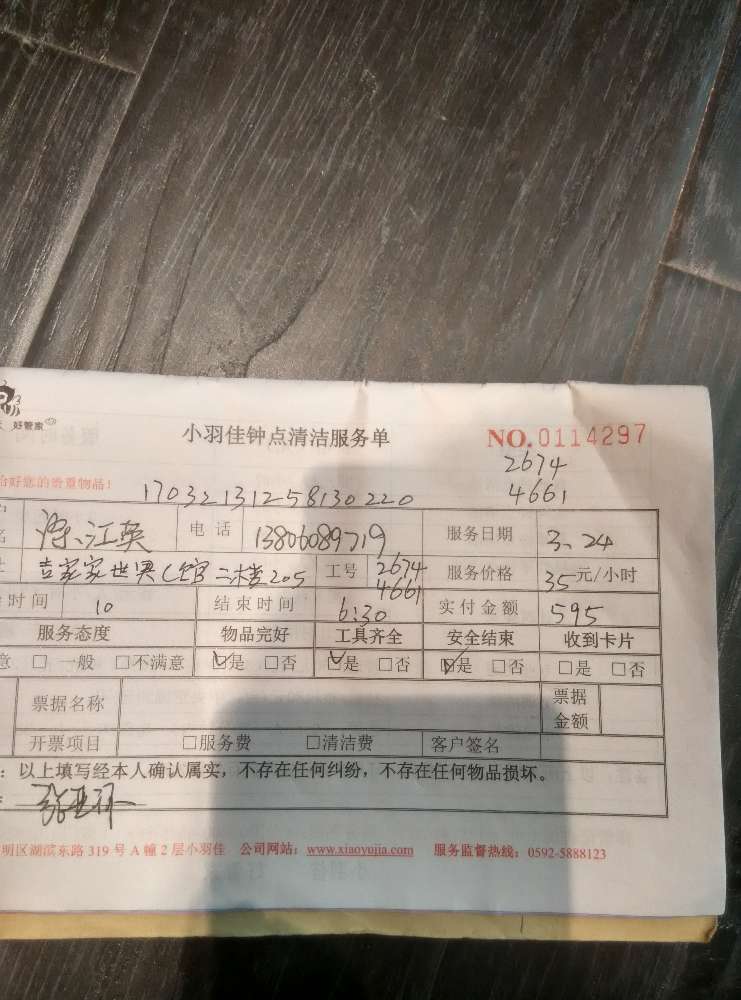 好管家
小羽佳钟点清洁服务单 NO.0114297
好您的贵重物品! 17032131258130220 2674
4661
江英 电话 13806089719 服务日期 3、24
二楼205 工号 2674 4661 服务价格 35元/小时
时间 10 结束时间 6:30 实付金额 595
服务态度 物品完好 工具齐全 安全结束 收到卡片
意 □一般 □不满意 ☑是 □否 ☑是 □否 ☑是 □否 □是 □否
票据名称 票据金额
开票项目 □服务费 □清洁费 客户签名
:以上填写经本人确认属实,不存在任何纠纷,不存在任何物品损坏。
明区湖滨东路 319 号 A 幢 2 层小羽佳 公司网站:www.xiaoyujia.com 服务监督热线:0592-5888123